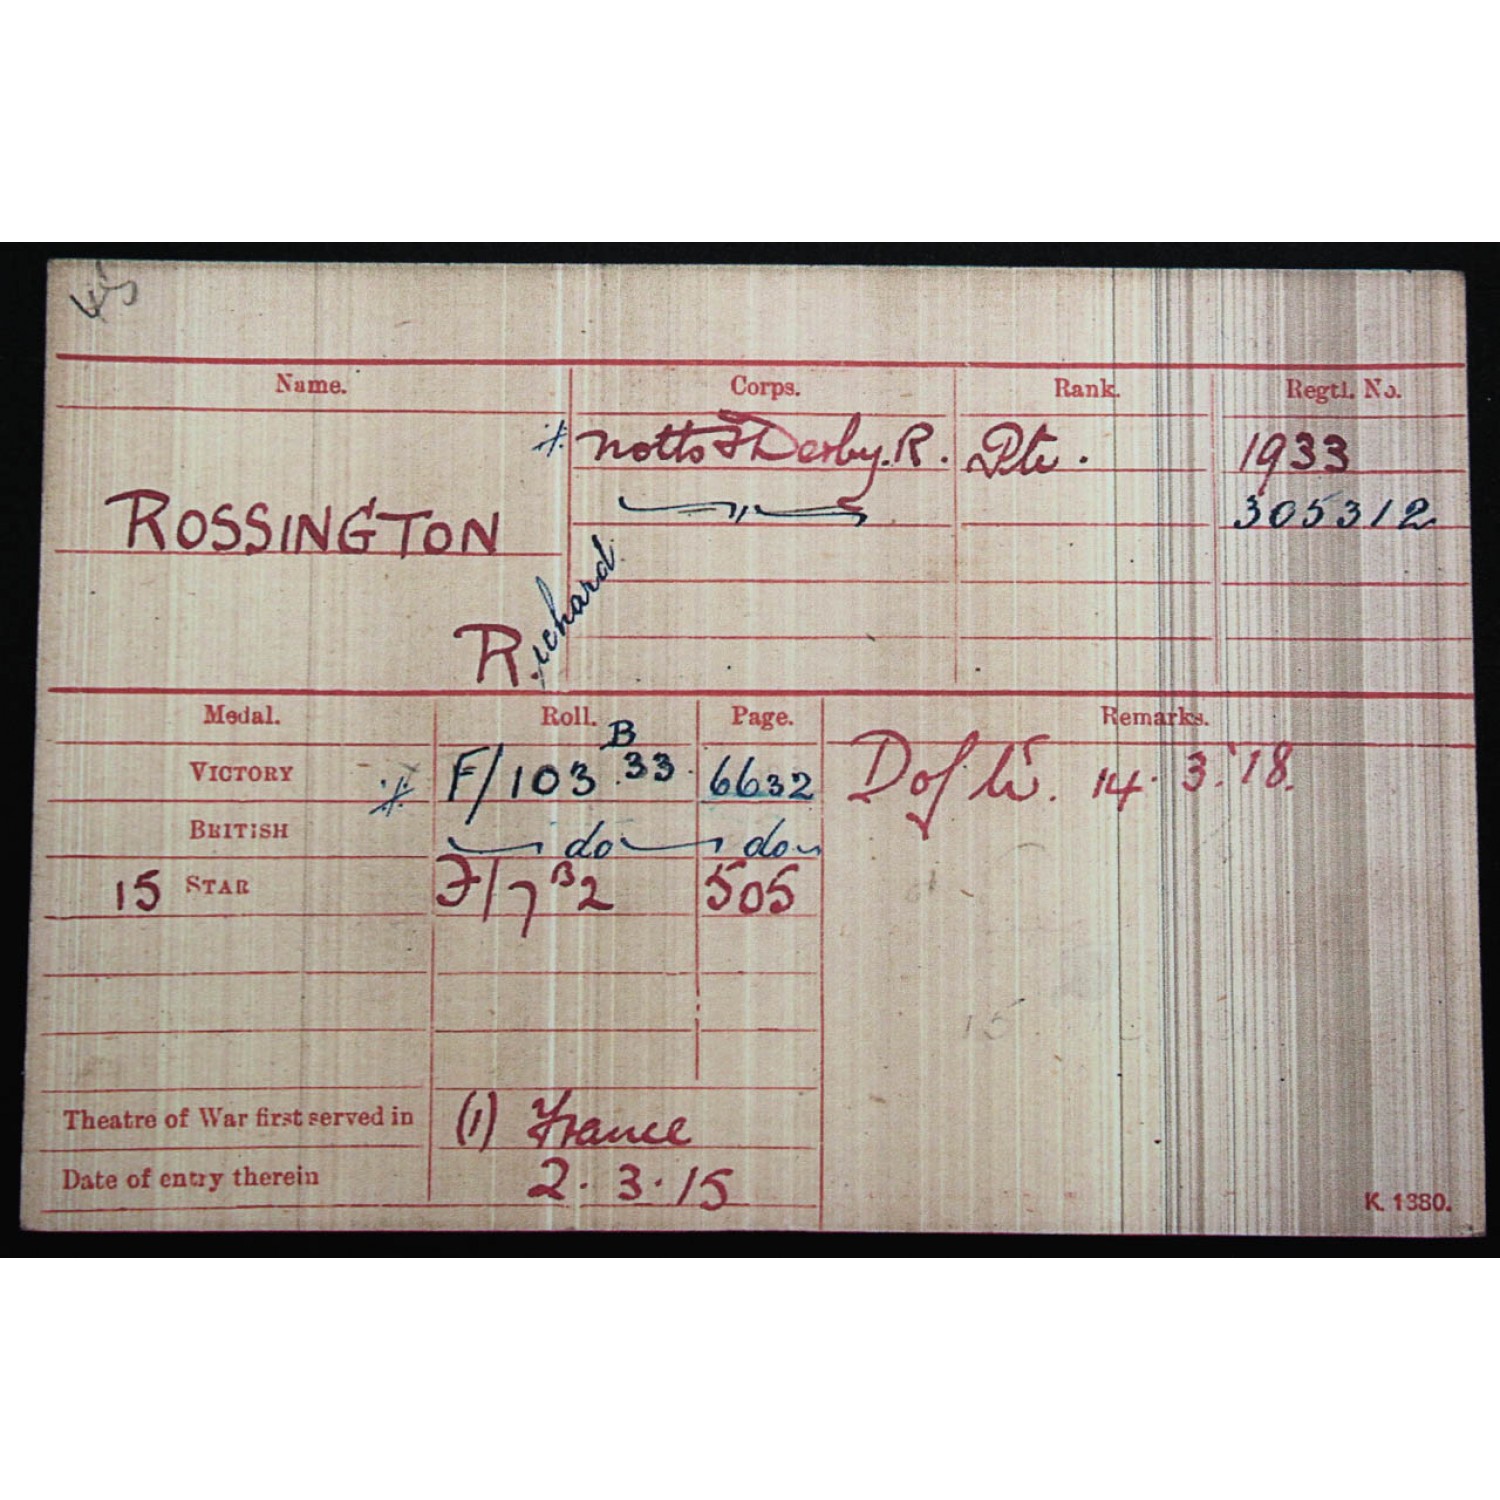 Name. Corps. Rank. Regtl. No.
* Notts & Derby. R. Pte. 1933
ROSSINGTON —"— 305312
R. ichard
Medal. Roll. Page. Remarks.
VICTORY * F/103 B 33. 6632 D of W. 14.3.'18.
BRITISH — do — do —
15 STAR F/7 B 2 505
Theatre of War first served in (1) France
Date of entry therein 2.3.15
K. 1380.